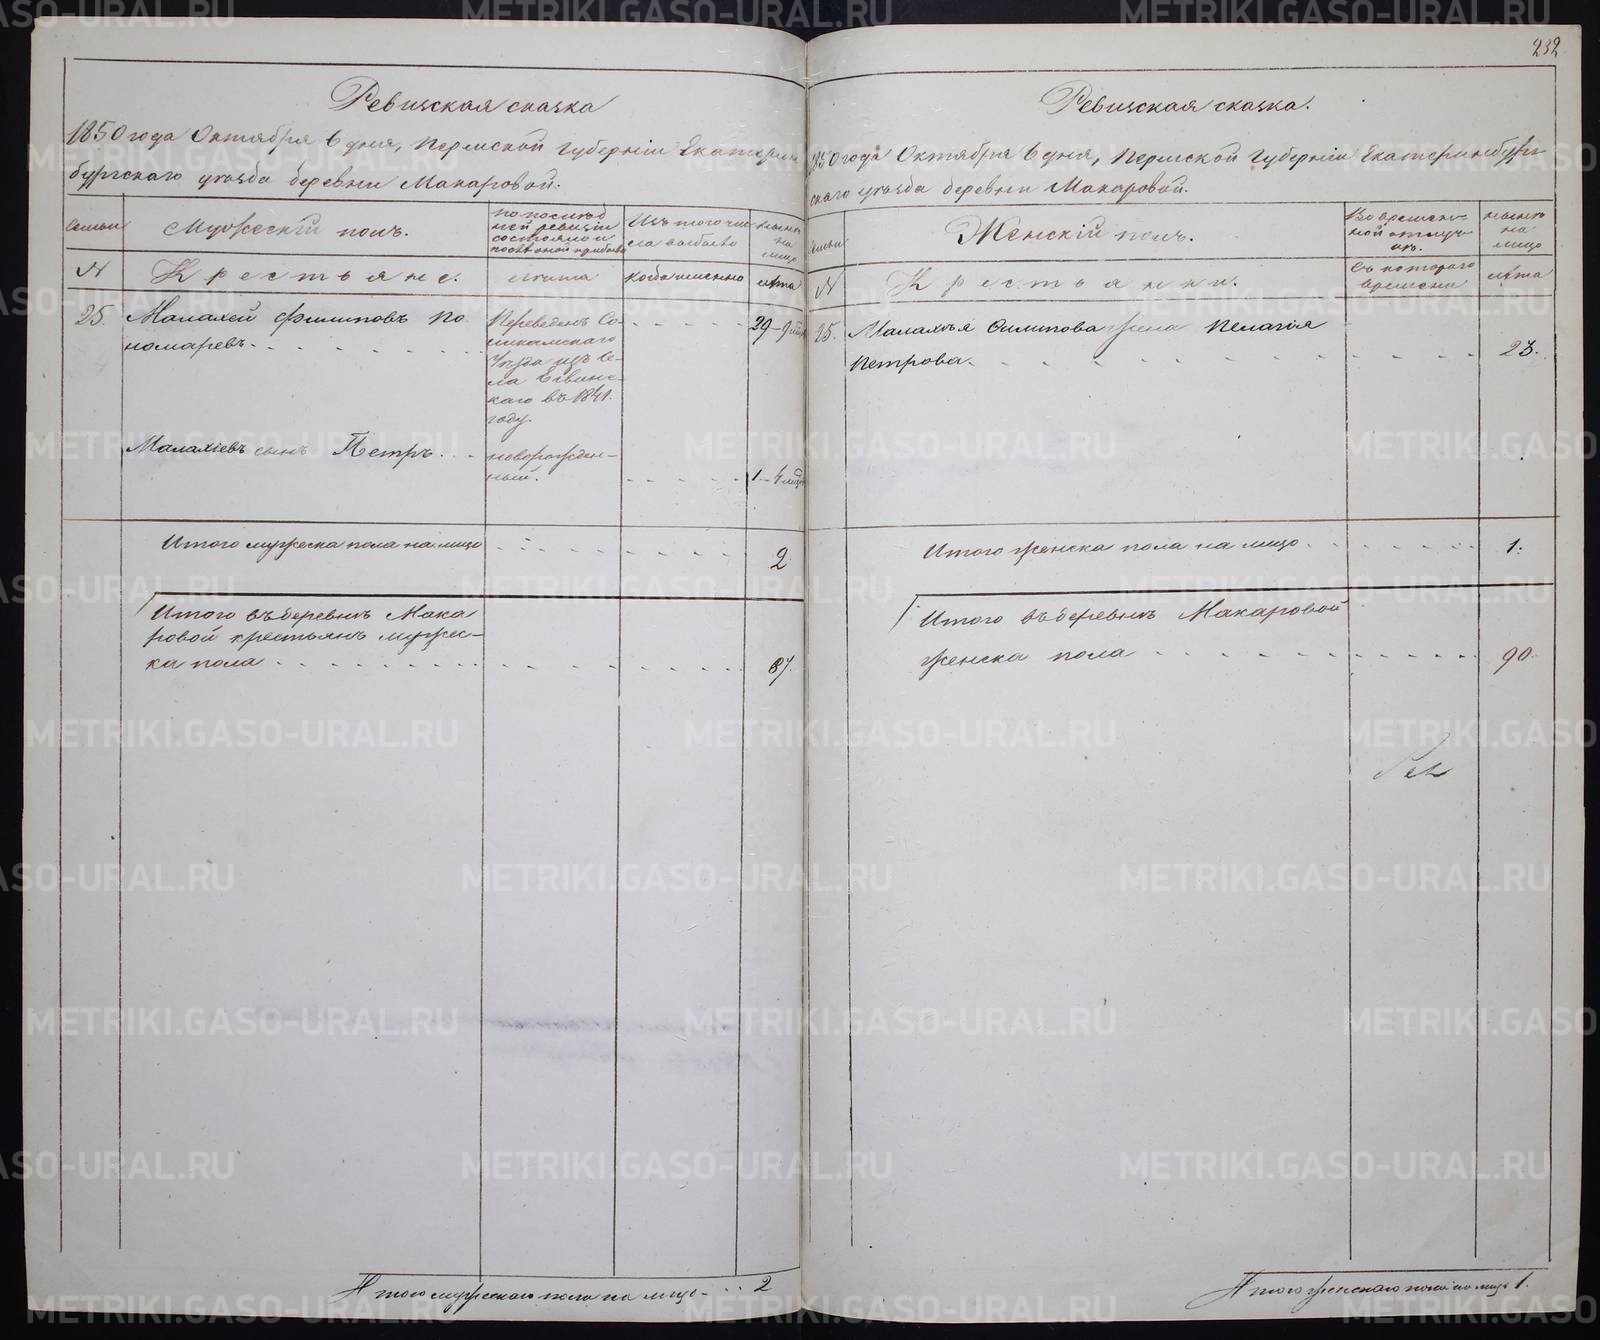 232
Ревизская сказка
1850 года Октября 6 дня, Пермской Губернiи Екатерин
бургскаго уѣзда деревни Макаровой.
Семьи
Мужескiй полъ.
по послѣд
ней ревизiи
состояло и
послѣ оной прибыло
Изъ того чис
ла выбыло
нынѣ
на
лицо
N
Крестьяне.
лѣта
когда именно
лѣта
25.
Малахей Филиповъ По
номаревъ
Переведенъ Со-
ликамскаго
Уѣзда изъ Се-
ла
каго въ 1841.
году.
29-9
Малахiевъ сынъ Петръ
новорожден-
ный.
1-4
Итого мужеска пола на лицо
2
Итого въ деревнѣ Мака
ровой крестьянъ мужес-
ка пола
87.
Итого мужескаго пола на лицо
2
Ревизская сказка.
1850 года Октября 6 дня, Пермской Губернiи Екатеринбург-
скаго уѣзда деревни Макаровой.
Семьи
Женскiй полъ.
Во времен-
ной отлуч-
кѣ.
нынѣ
на
лицо
N
Крестьянки.
Съ котораго
времени
лѣта
25.
Малахѣя Филипова жена Пелагiя
Петрова.
23.
Итого женска пола на лицо
1.
Итого въ деревнѣ Макаровой
женска пола
90.
Итого женскаго пола на лицо 1.
METRIKI.GASO-URAL.RU